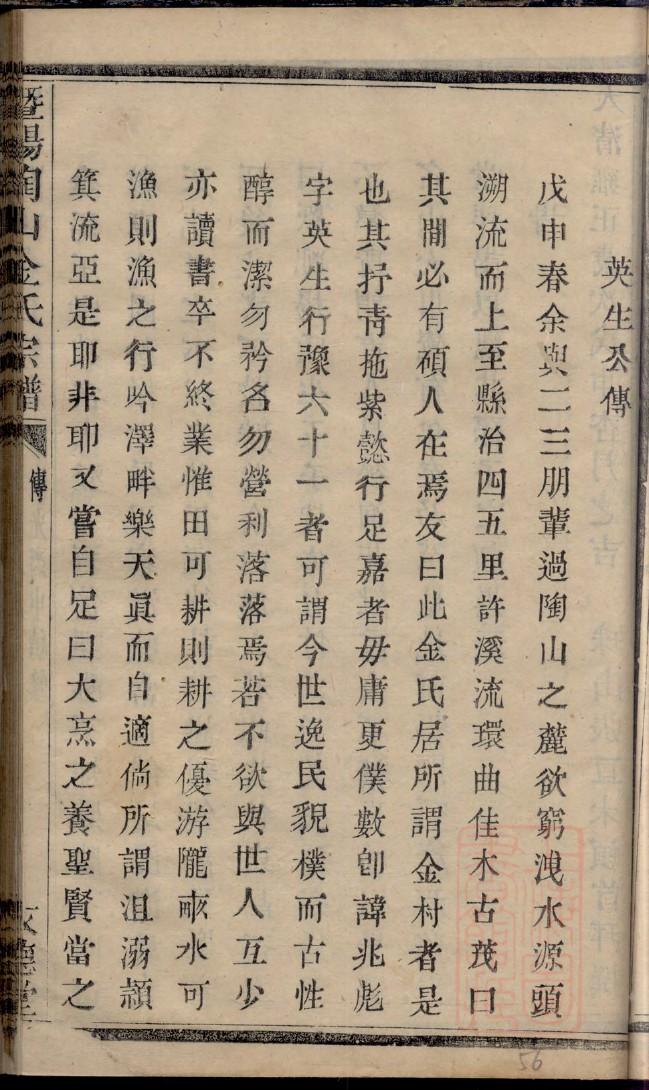 英生公傳
戊申春余與二三朋輩過陶山之麓欲窮洩水源頭
溯流而上至縣治四五里許溪流環曲佳木古茂曰
其間必有碩人在焉友曰此金氏居所謂金村者是
也其抒靑拖紫懿行足嘉者毋庸更僕數卽諱兆彪
字英生行豫六十一者可謂今世逸民貌樸而古性
醇而潔勿矜名勿營利落落焉若不欲與世人互少
亦讀書卒不終業惟田可耕則耕之優游隴畝水可
漁則漁之行吟澤畔樂天眞而自適倘所謂沮溺潁
箕流亞是耶非耶又嘗自足曰大烹之養聖賢當之
暨陽陶山金氏宗譜
傳
文德堂
56